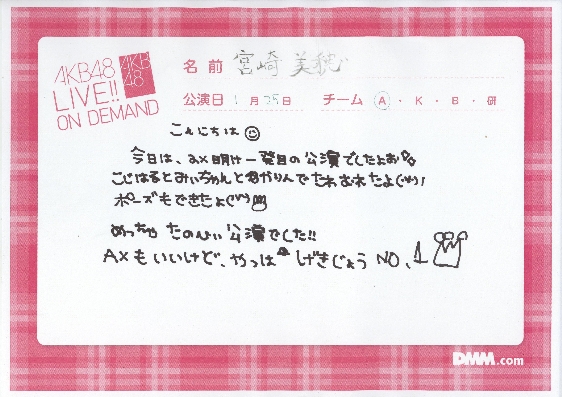 AKB48
LIVE!!
ON DEMAND
AKB
48
名前 宮崎美穂
公演日 1月25日 チーム A・K・B・研
こんにちは
今日は、AX明け一発目の公演でしたよお
こじはるとみぃちゃんとあやりんでたわむれたよ(^^)!
ポーズもできたよ(^^)
めっちゃたのしい公演でした!!
AXもいいけど、やっぱ げきじょう NO.1
DMM.com